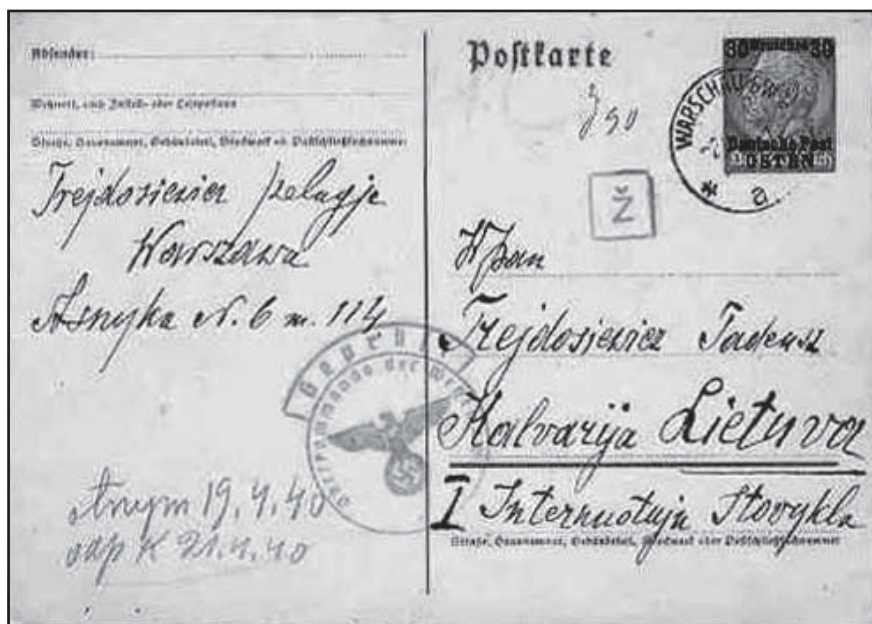 Absender:
Wohnort, auch Zustell- oder Leitpostamt
Straße, Hausnummer, Gebäudeteil, Stockwerk od. Postschließfachnummer
Trejdosiewicz Pelagje
Warszawa
Asnyka N. 6 m. 114
Geprüft
Oberkommando der Wehr
otrzym 19.4.40
odp K 21.4.40
Postkarte
30 Deutsches 30
Deutsche Post
OSTEN
WARSCHAU
a
Ž
WPan
Trejdosiewicz Tadeusz
Kalvarija Lietuva
I Internuotuju Stovykla
Straße, Hausnummer, Gebäudeteil, Stockwerk oder Postschließfachnummer